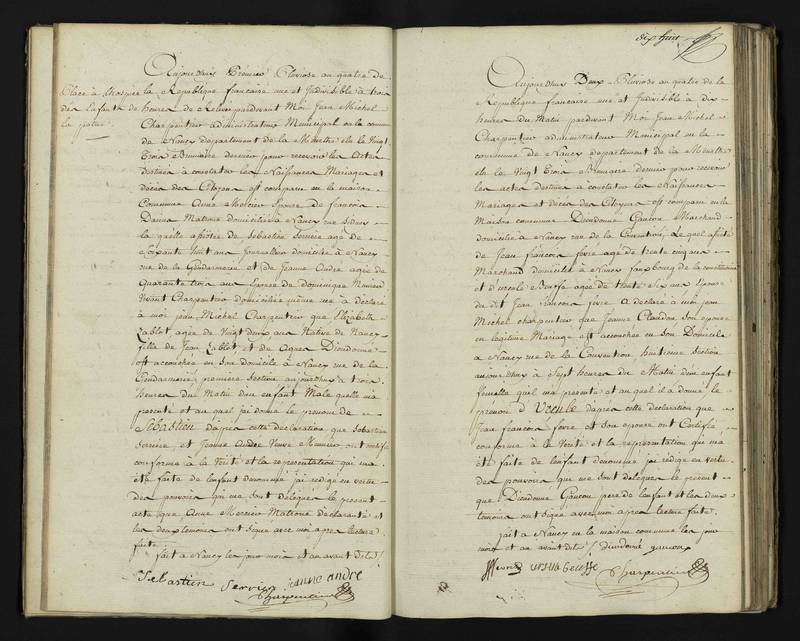 Aujourd'huy Premier Pluviose an quatre de
Place à Hospice
des Enfants de
la patrie
la Republique francaise une et Jndivisible à trois
heures de Relevée pardevant Moi Jean Michel
Charpentier administrateur Municipal en la commune
de Nancy departement de la Meurthe elu le Vingt
Trois Brumaire dernier pour recevoir les Actes
destinés a constater les Naissances Mariages et
décès des Citoyens est comparue en la maison
Commune Anne Mercier Epouse de francois
Matrone domiciliée à Nancy rue
la quelle assistée de Sebastien Serrier agé de
Soixante huit ans Journalier domicilié à Nancy
rue de la Gendarmerie et de Jeanne André agée de
Quarante trois ans Epouse de dominique Munier
Vivant Charpentier domiciliée même rue à déclaré
à moi jean Michel Charpentier que Elizabeth
Lablot agée de Vingt deux ans Native de Nancy
fille de Jean Lablot et de Agnes Dieudonné
est accouchée en son domicile à Nancy rue de la
Gendarmerie premiere Section aujourdhuy à trois
heures du Matin d'un enfant Male quelle ma
presenté et au quel jai donné le prenom de
Sébastien daprès cette déclaration que Sebastien
Serrière et Jeanne André Veuve Munier ont certifié
conforme à la Verité et la representation qui ma
été faite de lenfant denommé jai rédigé en vertu
des pouvoirs qui me sont délégués le present
acte que Anne Mercier Matrone déclarante et
les deux temoins ont signé avec moi apres lecture
faite
fait à Nancy les jour mois et an avant dits /.
Sebastien Serrier jeanne andre
Charpentier
dix huit
Aujourdhuy Deux Pluviose an quatre de la
Republique francaise une et Jndivisible à dix
heures du Matin pardevant Moi Jean Michel
Charpentier administrateur Municipal en la
commune de Nancy departement de la Meurthe
elu le Vingt Trois Brumaire dernier pour recevoir
les actes destinés a constater les Naissances
Mariages et décès des Citoyens est comparu en la
Maison commune Dieudonné Gaucon Marchand
domicilié à Nancy rue de la Convention, Le quel assisté
de Jean francois fevre agé de trente cinq ans
Marchand domicilié à Nancy faux bourg de la constitution
et d'urcule Beusse agée de trente six ans Epouse
du dit Jean francois fevre A déclaré à moi jean
Michel charpentier que Jeanne Claudon Son epouse
en legitime Mariage est accouchée en son Domicile
à Nancy rue de la Convention huitieme Section
aujourdhuy à Sept heures de Matin d'un enfant
femelle quil ma presenté et au quel il a donné le
prenom d'Urcule daprès cette déclaration que
Jean francois fevre et son epouse ont Certifié
conforme à la Verité et la représentation qui ma
été faite de lenfant denommé jai rédigé en vertu
des pouvoirs que me sont délégués le present
que Dieudonné Gaucon pere de lenfant et les deux
temoins ont signé avec moi apres lecture faite
fait à Nancy en la maison commune les jour
mois et an avant dits /. dieudonné gaucon
fevre ursula beusse
Charpentier